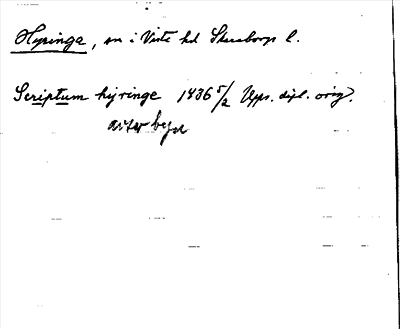 Hyringa, sn i Viste hd Skaraborgs l.
Scriptum hyringe 1436 5/2 Upps. dipl. orig.
avser begd